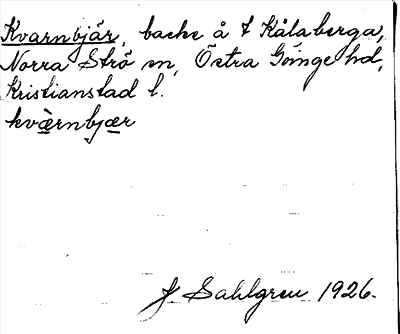 Kvarnbjär, backe å t Kålaberga,
Norra Strö sn, Östra Göinge hd,
Kristianstad l.
kværnbjær
J Sahlgren 1926.